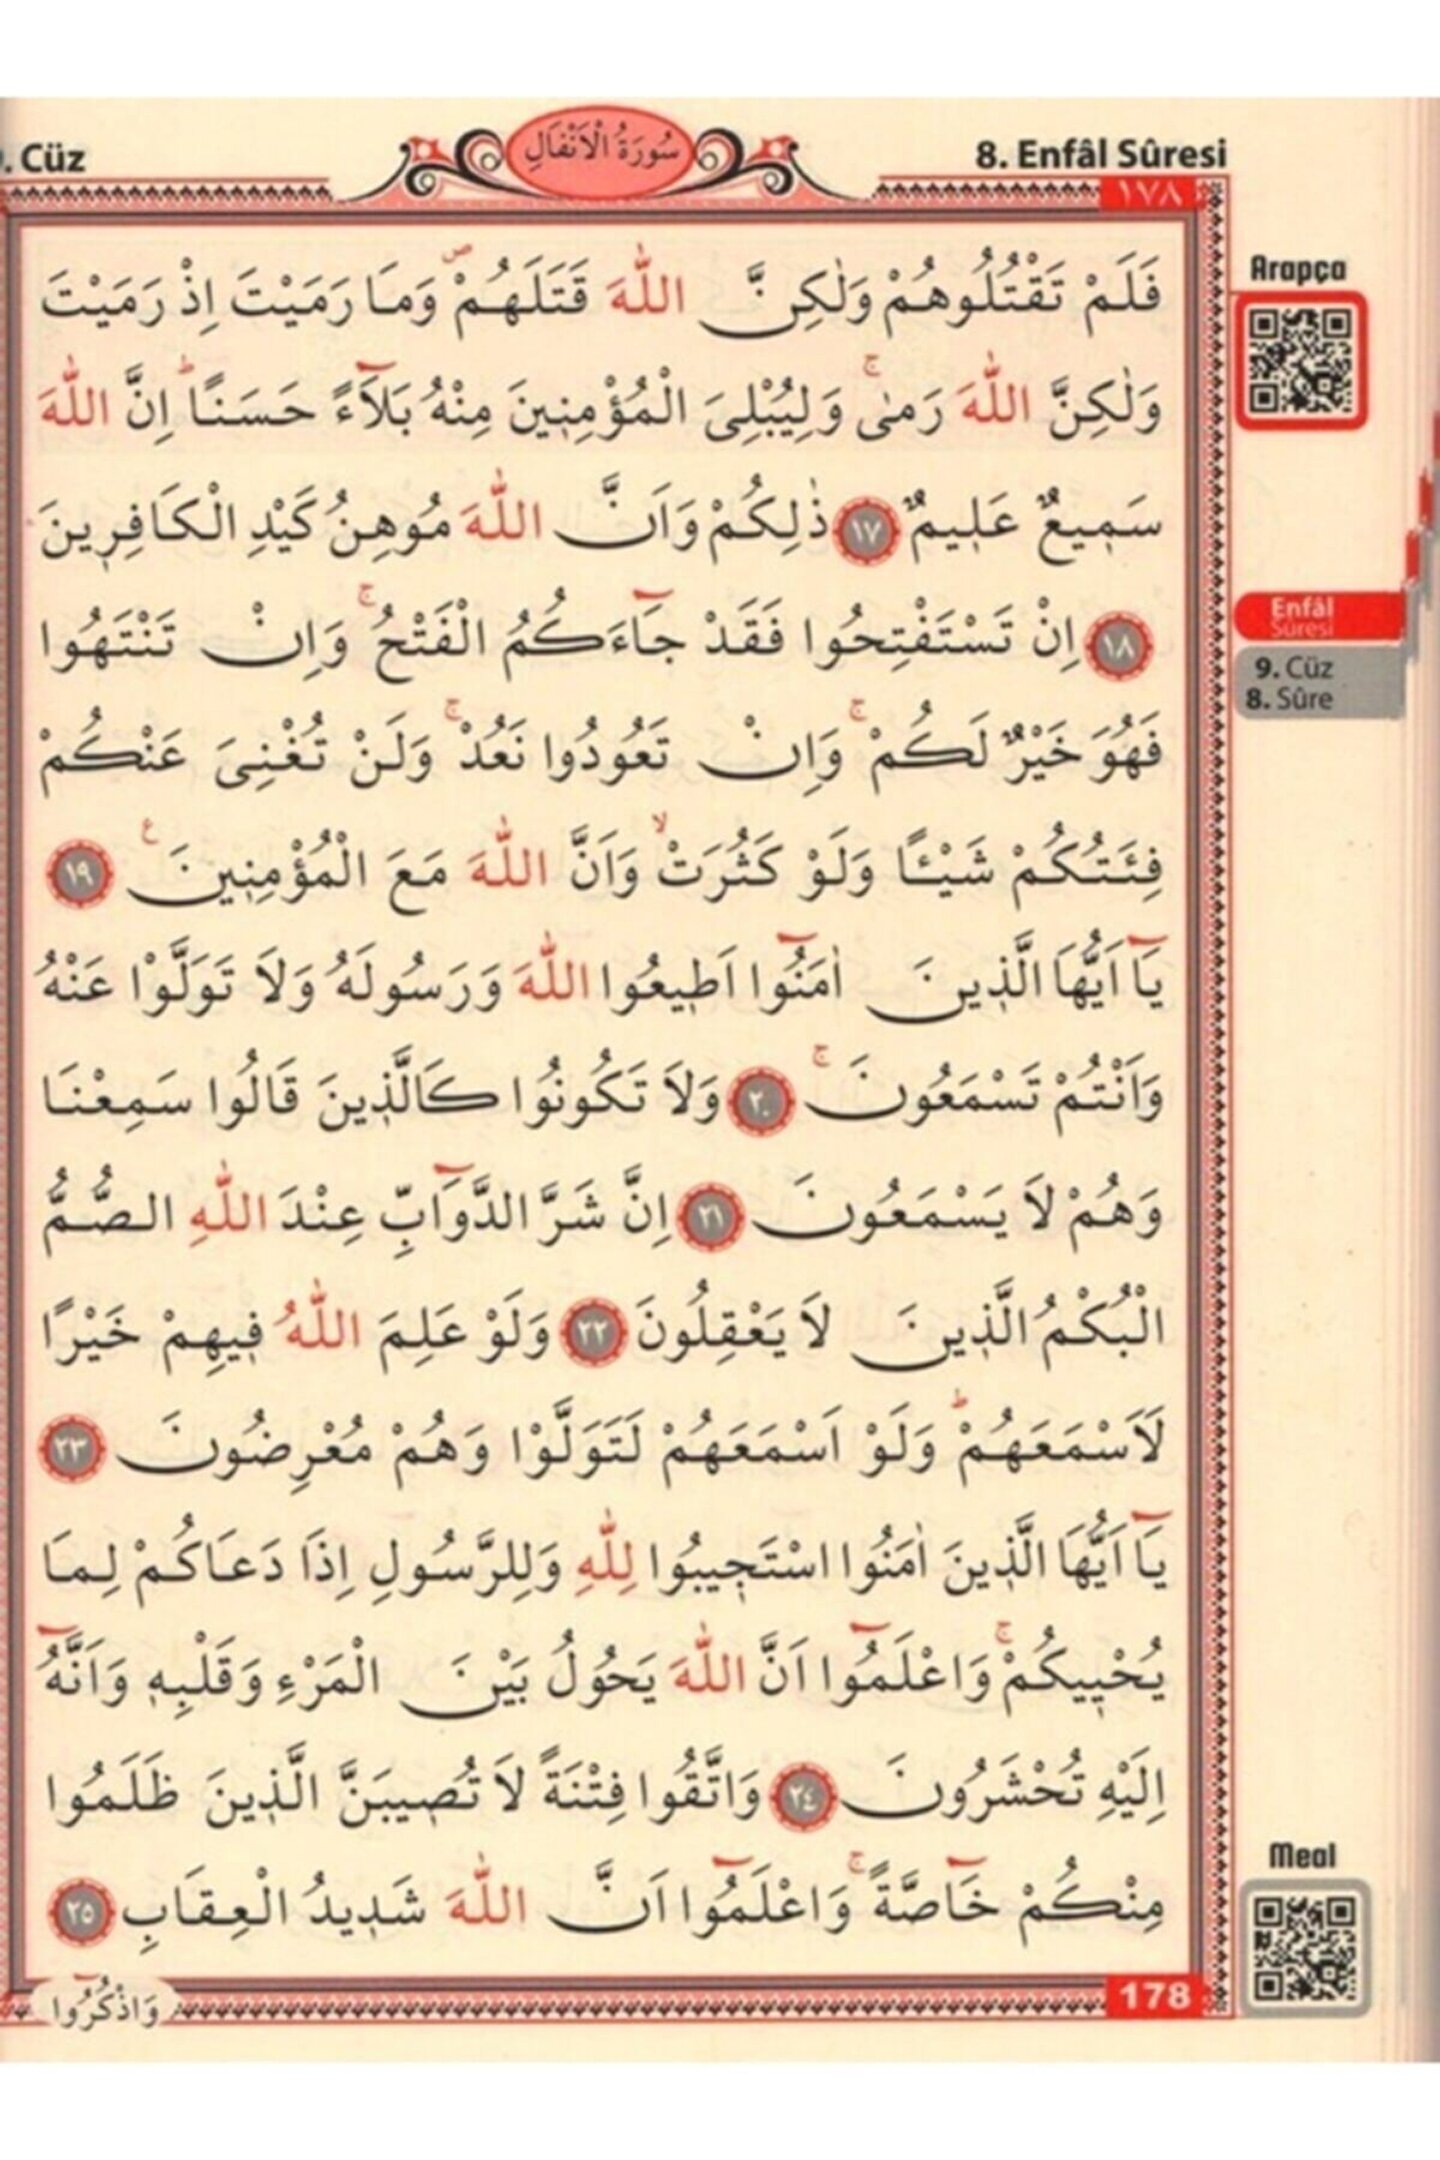 . Cüz
سُورَةُ الْاَنْفَالِ
8. Enfâl Sûresi
١٧٨
فَلَمْ تَقْتُلُوهُمْ وَلٰكِنَّ اللّٰهَ قَتَلَهُمْۖ وَمَا رَمَيْتَ اِذْ رَمَيْتَ
وَلٰكِنَّ اللّٰهَ رَمٰىۚ وَلِيُبْلِىَ الْمُؤْمِنٖينَ مِنْهُ بَلَٓاءً حَسَنًاؕ اِنَّ اللّٰهَ
سَمٖيعٌ عَلٖيمٌ ﴿١٧﴾ ذٰلِكُمْ وَاَنَّ اللّٰهَ مُوهِنُ كَيْدِ الْكَافِرٖينَ
﴿١٨﴾ اِنْ تَسْتَفْتِحُوا فَقَدْ جَٓاءَكُمُ الْفَتْحُۚ وَاِنْ تَنْتَهُوا
فَهُوَ خَيْرٌ لَكُمْۚ وَاِنْ تَعُودُوا نَعُدْۚ وَلَنْ تُغْنِىَ عَنْكُمْ
فِئَتُكُمْ شَيْـًٔا وَلَوْ كَثُرَتْۙ وَاَنَّ اللّٰهَ مَعَ الْمُؤْمِنٖينَ ع ﴿١٩﴾
يَٓا اَيُّهَا الَّذٖينَ اٰمَنُٓوا اَطٖيعُوا اللّٰهَ وَرَسُولَهُ وَلَا تَوَلَّوْا عَنْهُ
وَاَنْتُمْ تَسْمَعُونَۚ ﴿٢٠﴾ وَلَا تَكُونُوا كَالَّذٖينَ قَالُوا سَمِعْنَا
وَهُمْ لَا يَسْمَعُونَ ﴿٢١﴾ اِنَّ شَرَّ الدَّوَٓابِّ عِنْدَ اللّٰهِ الصُّمُّ
الْبُكْمُ الَّذٖينَ لَا يَعْقِلُونَ ﴿٢٢﴾ وَلَوْ عَلِمَ اللّٰهُ فٖيهِمْ خَيْرًا
لَاَسْمَعَهُمْؕ وَلَوْ اَسْمَعَهُمْ لَتَوَلَّوْا وَهُمْ مُعْرِضُونَ ﴿٢٣﴾
يَٓا اَيُّهَا الَّذٖينَ اٰمَنُوا اسْتَجٖيبُوا لِلّٰهِ وَلِلرَّسُولِ اِذَا دَعَاكُمْ لِمَا
يُحْيٖيكُمْۚ وَاعْلَمُٓوا اَنَّ اللّٰهَ يَحُولُ بَيْنَ الْمَرْءِ وَقَلْبِهٖ وَاَنَّهُٓ
اِلَيْهِ تُحْشَرُونَ ﴿٢٤﴾ وَاتَّقُوا فِتْنَةً لَا تُصٖيبَنَّ الَّذٖينَ ظَلَمُوا
مِنْكُمْ خَٓاصَّةًۚ وَاعْلَمُٓوا اَنَّ اللّٰهَ شَدٖيدُ الْعِقَابِ ﴿٢٥﴾
وَاذْكُرُٓوا
178
Arapça
Enfâl
Sûresi
9. Cüz
8. Sûre
Meal